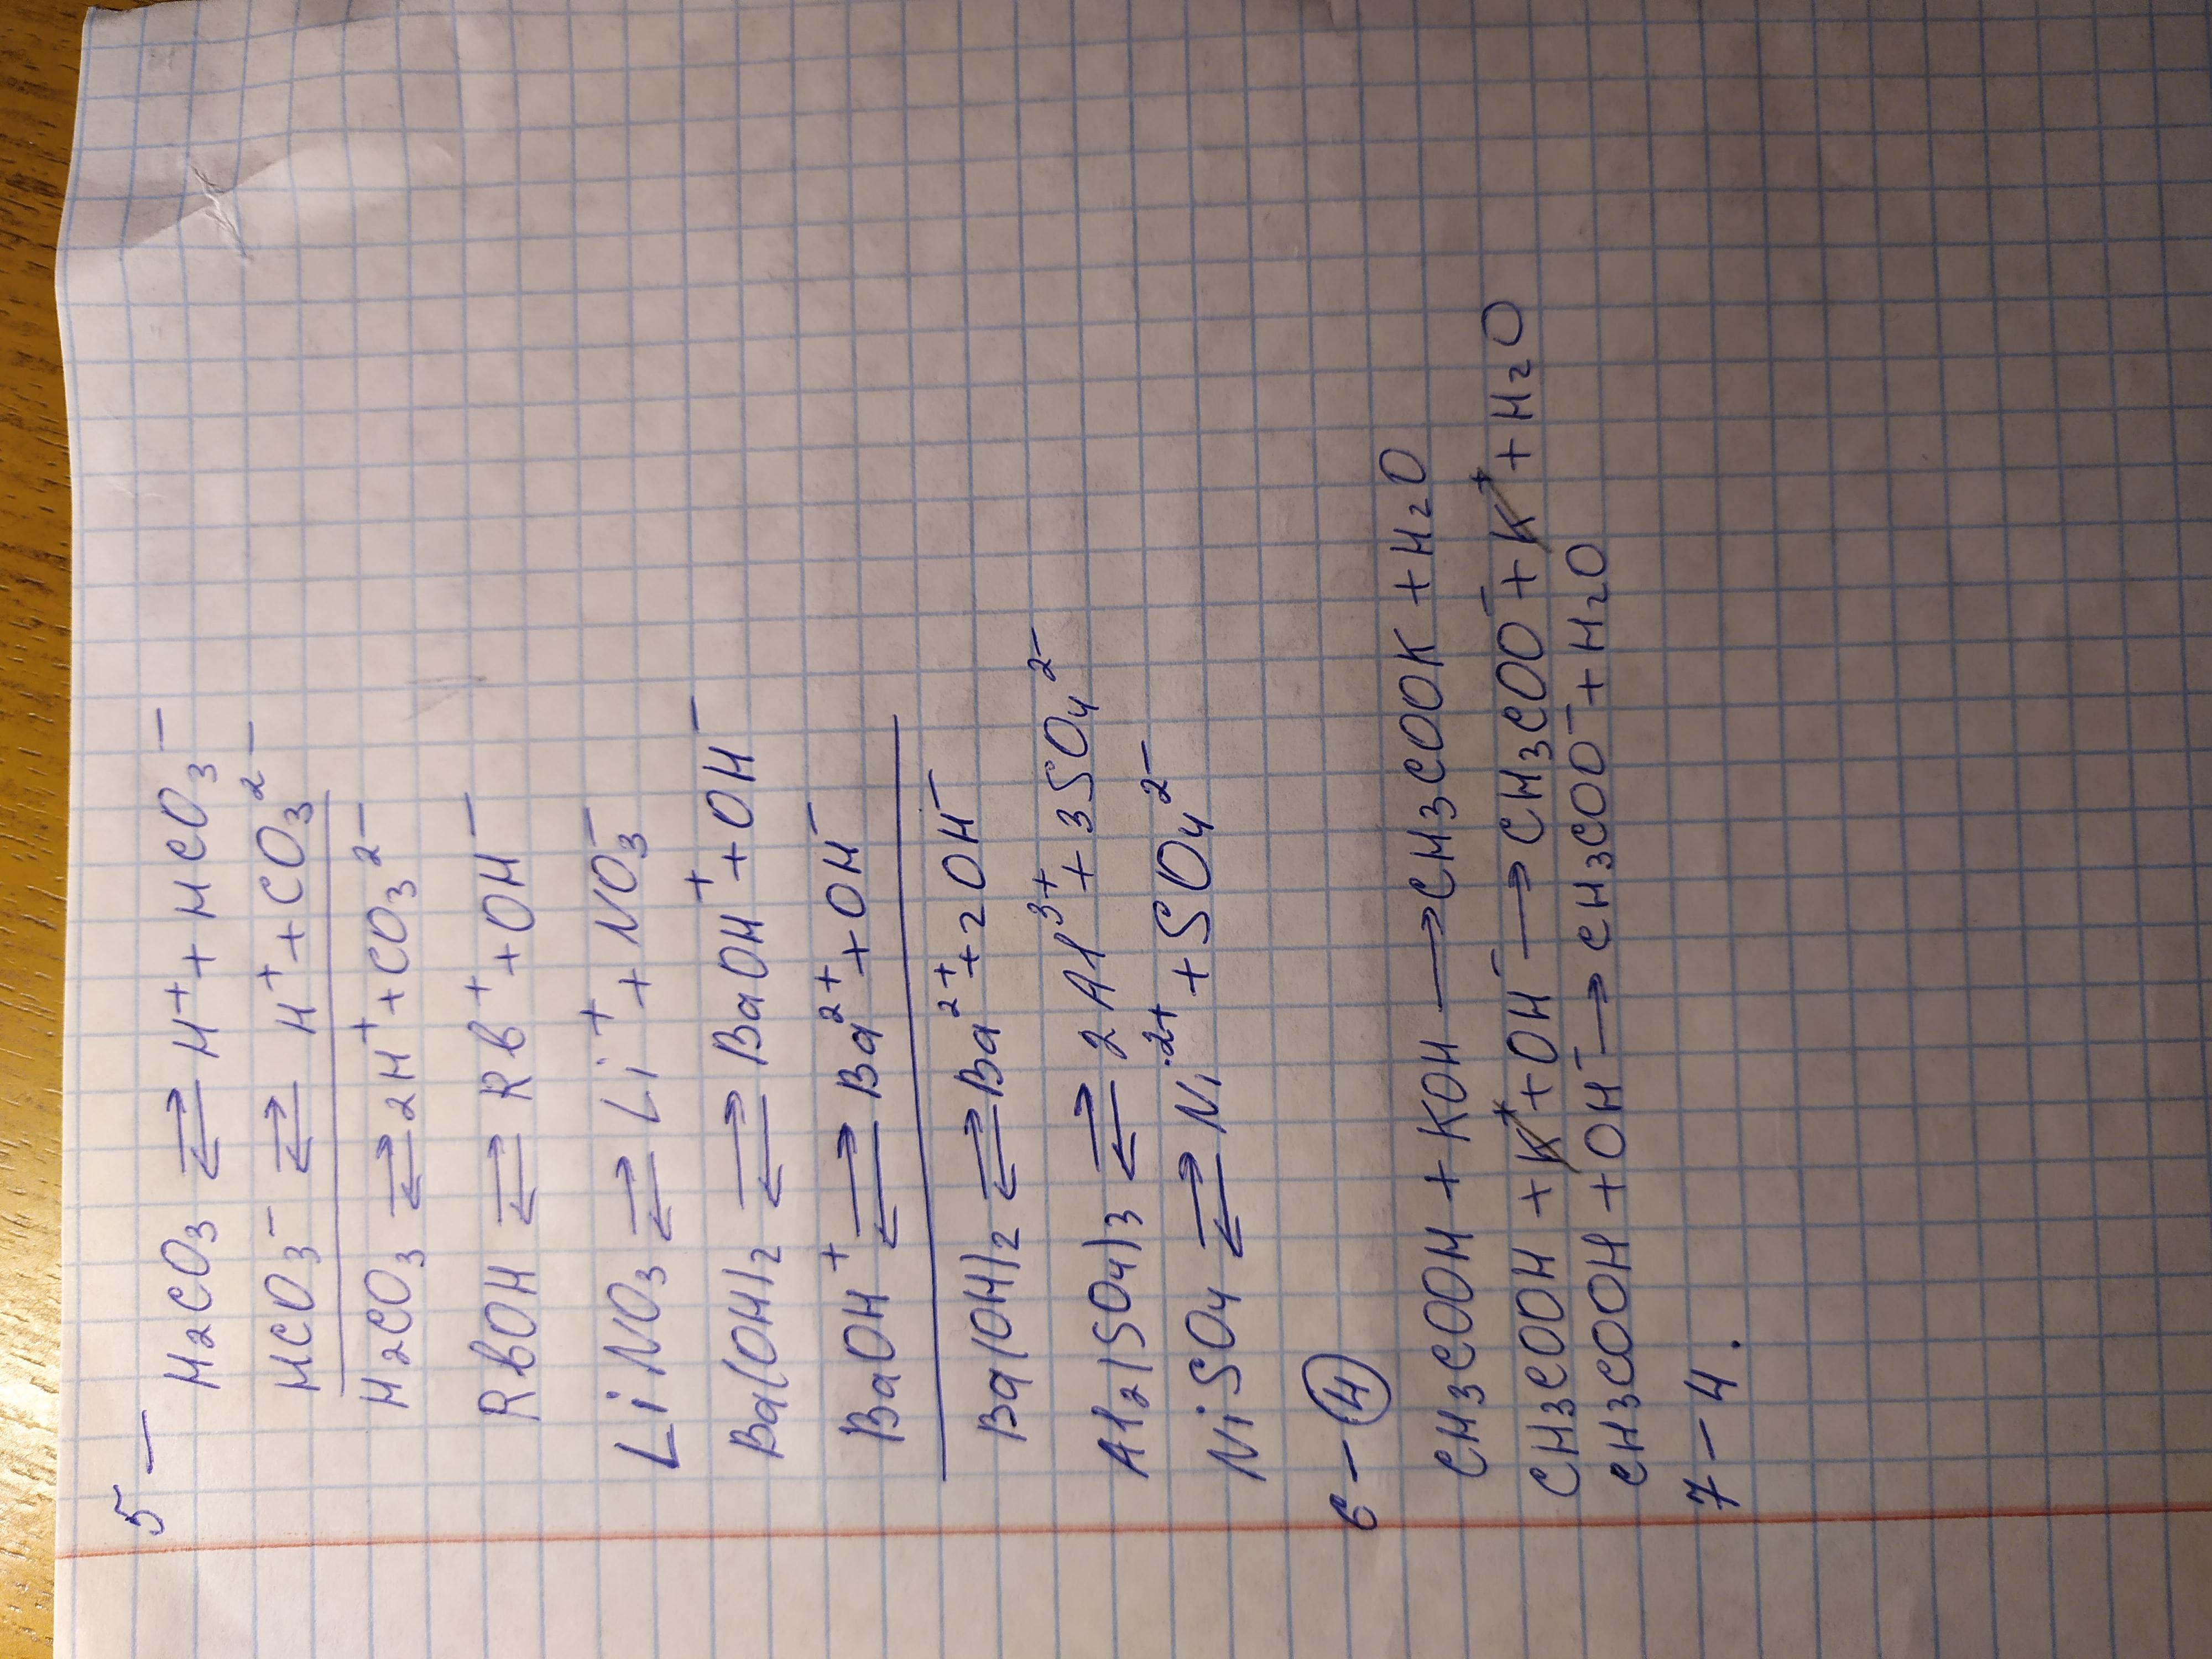 5 —
H₂CO₃ ⇄ H⁺ + HCO₃⁻
HCO₃⁻ ⇄ H⁺ + CO₃²⁻
H₂CO₃ ⇄ 2H⁺ + CO₃²⁻
RbOH ⇄ Rb⁺ + OH⁻
LiNO₃ ⇄ Li⁺ + NO₃⁻
Ba(OH)₂ ⇄ BaOH⁺ + OH⁻
BaOH⁺ ⇄ Ba²⁺ + OH⁻
Ba(OH)₂ ⇄ Ba²⁺ + 2OH⁻
Al₂(SO₄)₃ ⇄ 2Al³⁺ + 3SO₄²⁻
NiSO₄ ⇄ Ni²⁺ + SO₄²⁻
6 — 4
CH₃COOH + KOH → CH₃COOK + H₂O
CH₃COOH + K⁺ + OH⁻ → CH₃COO⁻ + K⁺ + H₂O
CH₃COOH + OH⁻ → CH₃COO⁻ + H₂O
7 — 4.